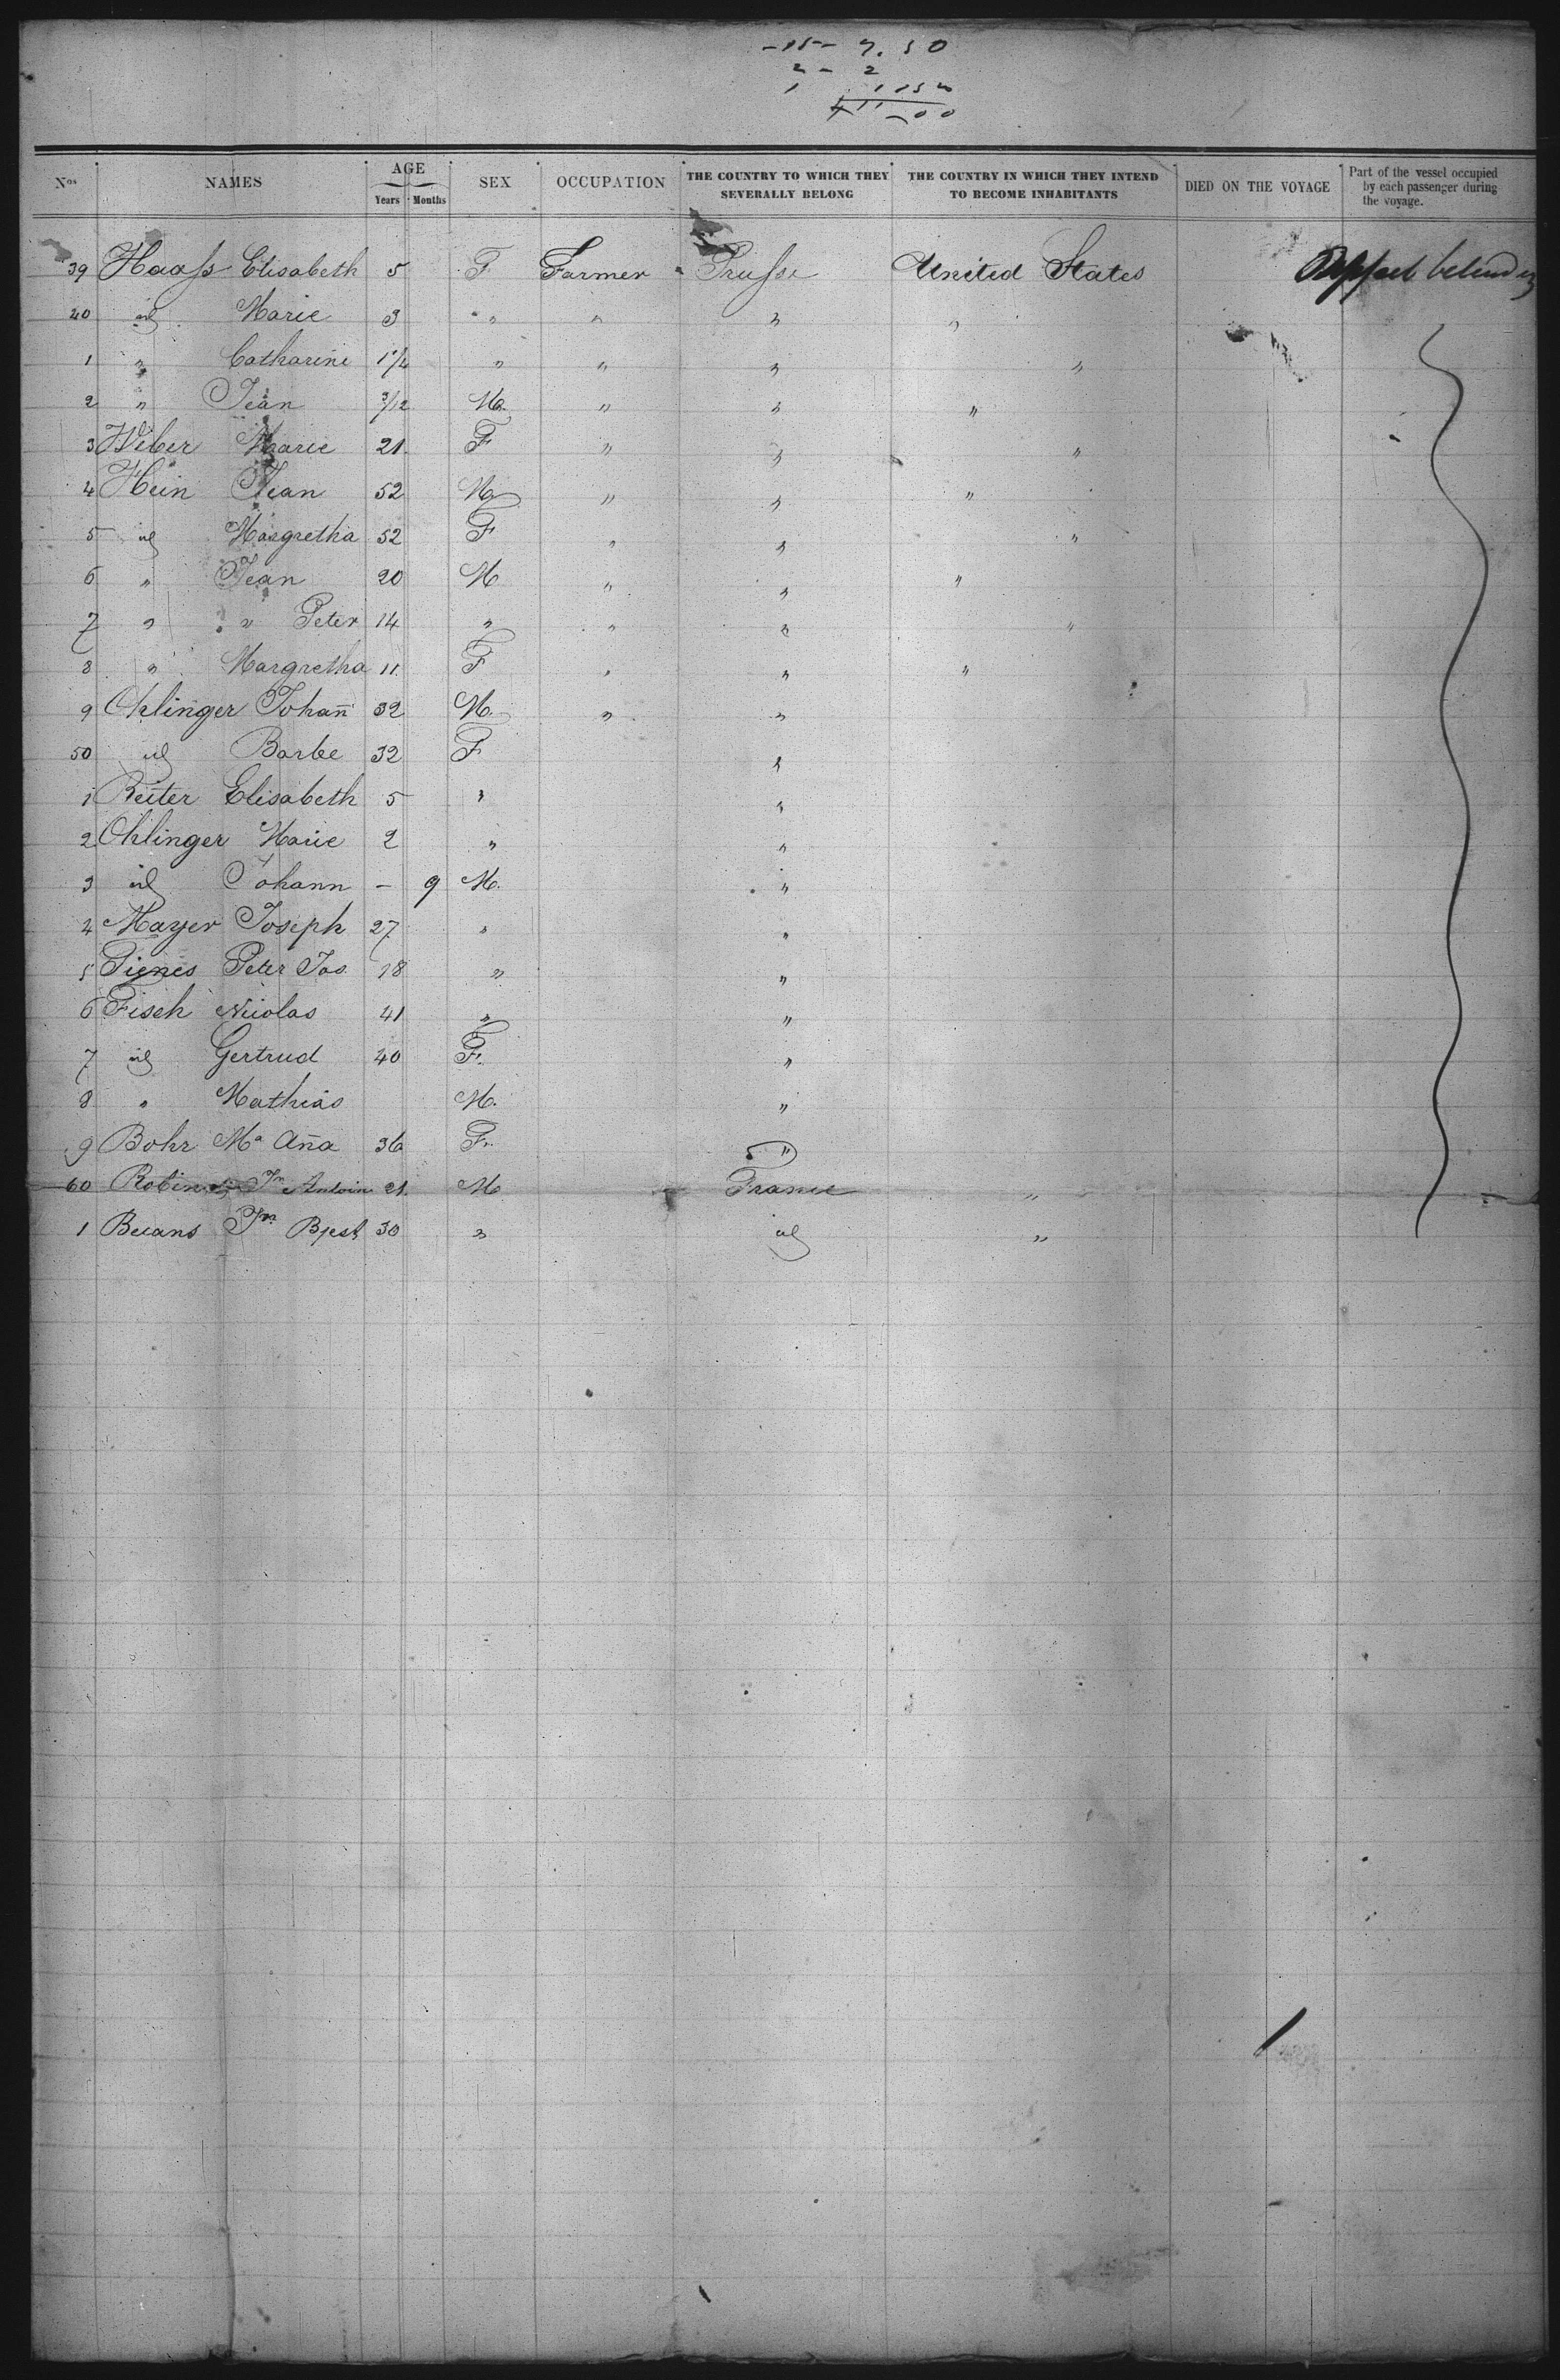 -15- 7.50
2 - 2
1 1 150
411-00
Nos NAMES AGE Years Months SEX OCCUPATION THE COUNTRY TO WHICH THEY SEVERALLY BELONG THE COUNTRY IN WHICH THEY INTEND TO BECOME INHABITANTS DIED ON THE VOYAGE Part of the vessel occupied by each passenger during the voyage.
39 Haaſs Elisabeth 5 F Farmer Pruſse United States
40 id Marie 3 " " " "
1 " Catharine 1 1/4 " " " "
2 " Jean 3/12 M. " " "
3 Weber Marie 21. F " " "
4 Hein Jean 52 M " " "
5 id Margretha 52 F " " "
6 " Jean 20 M " " "
7 " " Peter 14 " " " "
8 " Margretha 11 F " " "
9 Ohlinger Johañ 32 M. " "
50 id Barbe 32 F "
1 Reiter Elisabeth 5 " "
2 Ohlinger Marie 2 " "
3 id Johann - 9 M. "
4 Mayer Joseph 27 " "
5 Pienes Peter Jos. 18 " "
6 Fisch Nicolas 41 " "
7 id Gertrud 40 F. "
8 " Mathias M. "
9 Bohr Ma Aña 36 F. "
60 Jn Antoin 21. M France "
1 Jn 30 " id "